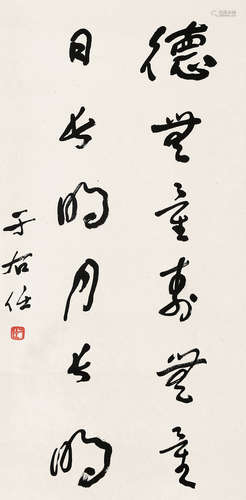 德無量壽無量
日長明月長明
于右任